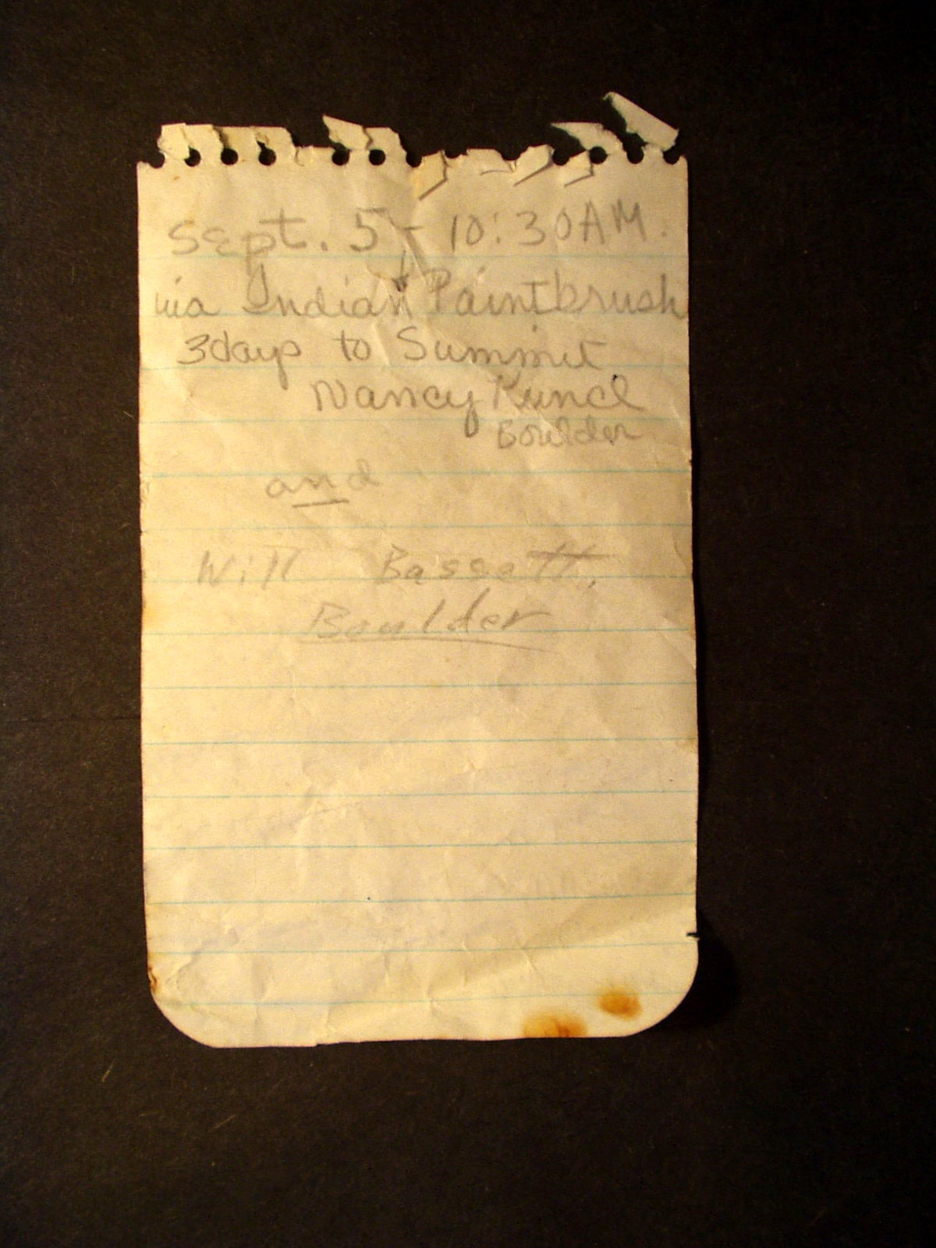 Sept. 5 - 10:30AM.
via Indian Paintbrush
3days to Summit
Nancy Kuncl
Boulder
and
Will Bassett,
Boulder